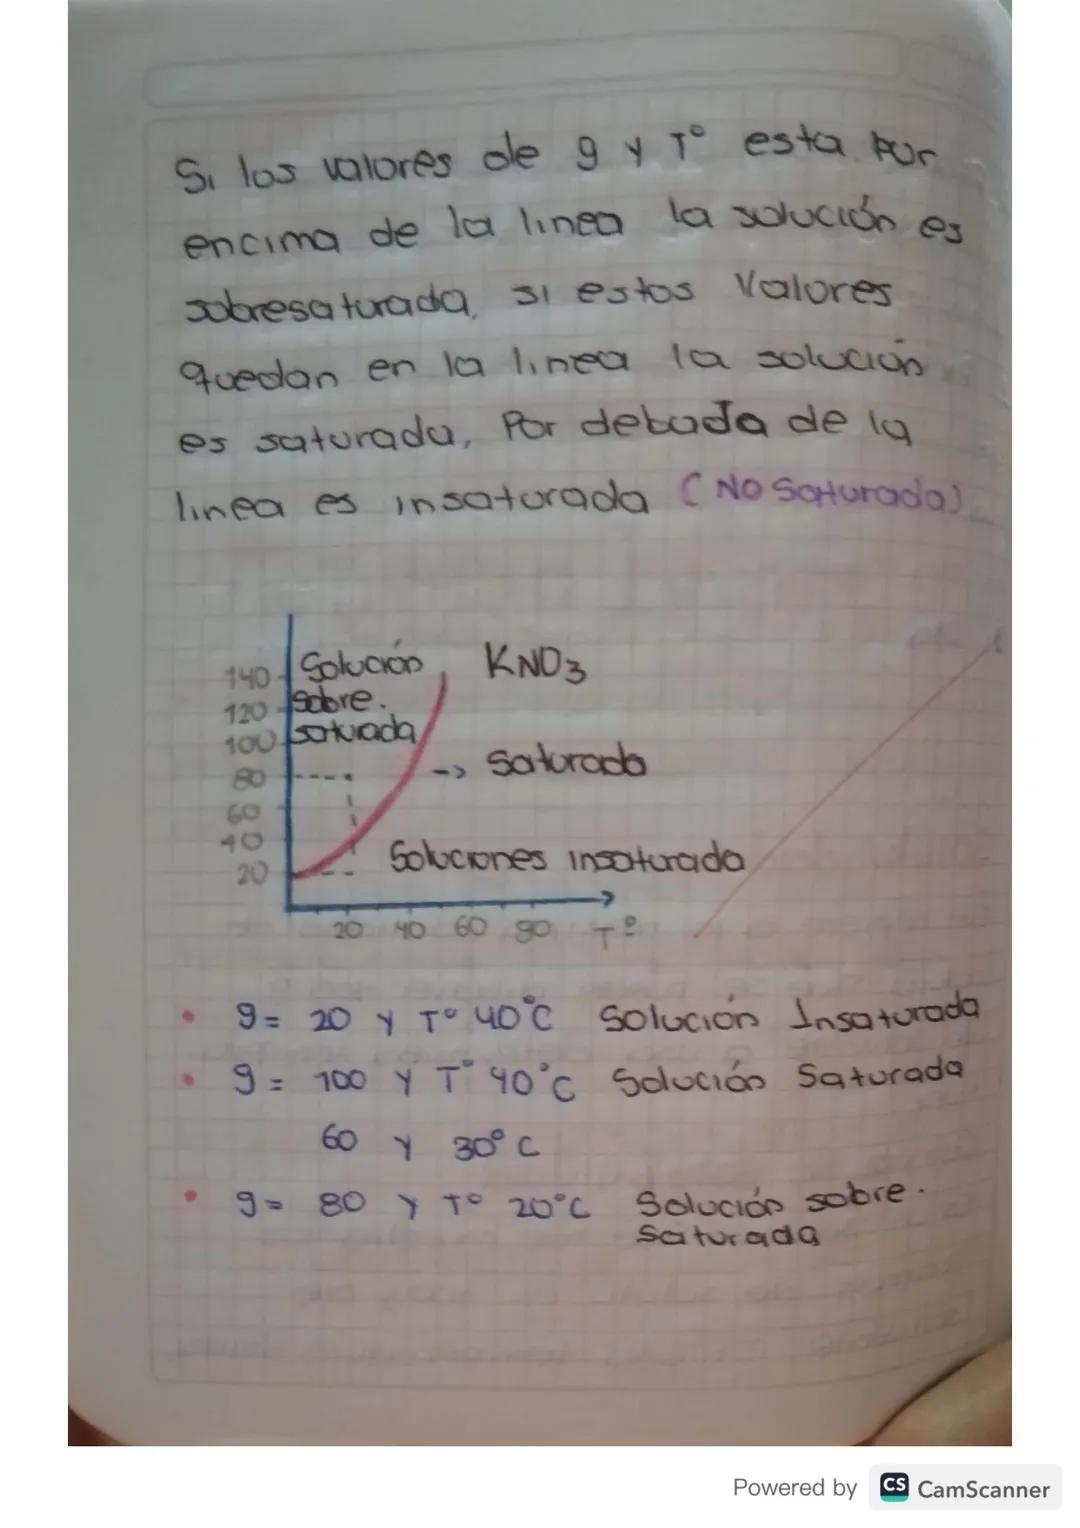 Si los valores de g y T° esta por
encima de la linea la solución es
sobresaturada, si estos Valores
quedan en la linea la solución
es saturada, Por debada de la
linea es insaturada (No Saturada)
140 Solución KNO3
120 sobre.
100 saturada
80 -> Saturada
60
40
20 Soluciones insaturada
20 40 60 80 T°
• g= 20 y T° 40°C Solución Insaturada
• g= 100 y T° 40°C Solución Saturada
60 y 30°C
• g= 80 y T° 20°C Solución sobre.
saturada
Powered by CS CamScanner